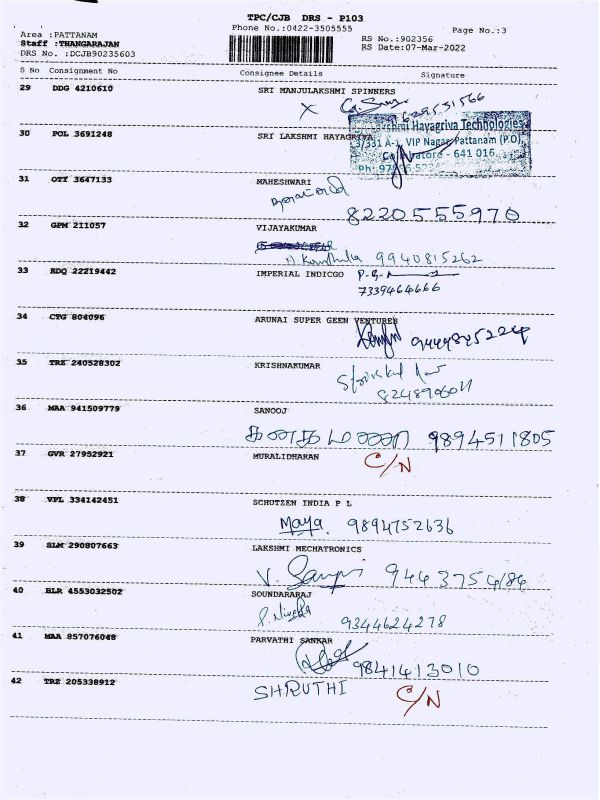 TPC/CJB DRS - P103
Phone No.:0422-3505555
Page No.:3
Area :PATTANAM
Staff :THANGARAJAN
DRS No. :DCJB90235603
RS No.:902356
RS Date:07-Mar-2022
S No Consignment No Consignee Details Signature
29 DDG 4210610 SRI MANJULAKSHMI SPINNERS
X
30 POL 3691248 SRI LAKSHMI HAYAGRIVA
Hayagriva Technologies
3/331 A-1, VIP Nagar, Pattanam (P.O),
Coimbatore - 641 016
31 OTY 3647133 MAHESHWARI
8220555970
32 GPM 211057 VIJAYAKUMAR
9940815262
33 EDQ 22219442 IMPERIAL INDICGO
7339464666
34 CTG 804096 ARUNAI SUPER GEEN VENTURES
35 TRZ 240528302 KRISHNAKUMAR
36 MAA 941509779 SANOOJ
9894511805
37 GVR 27952921 MURALIDHARAN
C/N
38 VPL 334142451 SCHUTZEN INDIA P L
Maya 9894752636
39 SLM 290807663 LAKSHMI MECHATRONICS
40 BLR 4553032502 SOUNDARARAJ
9344624278
41 MAA 857076048 PARVATHI SANKAR
9841413010
42 TRZ 205338912 SHRUTHI
C/N